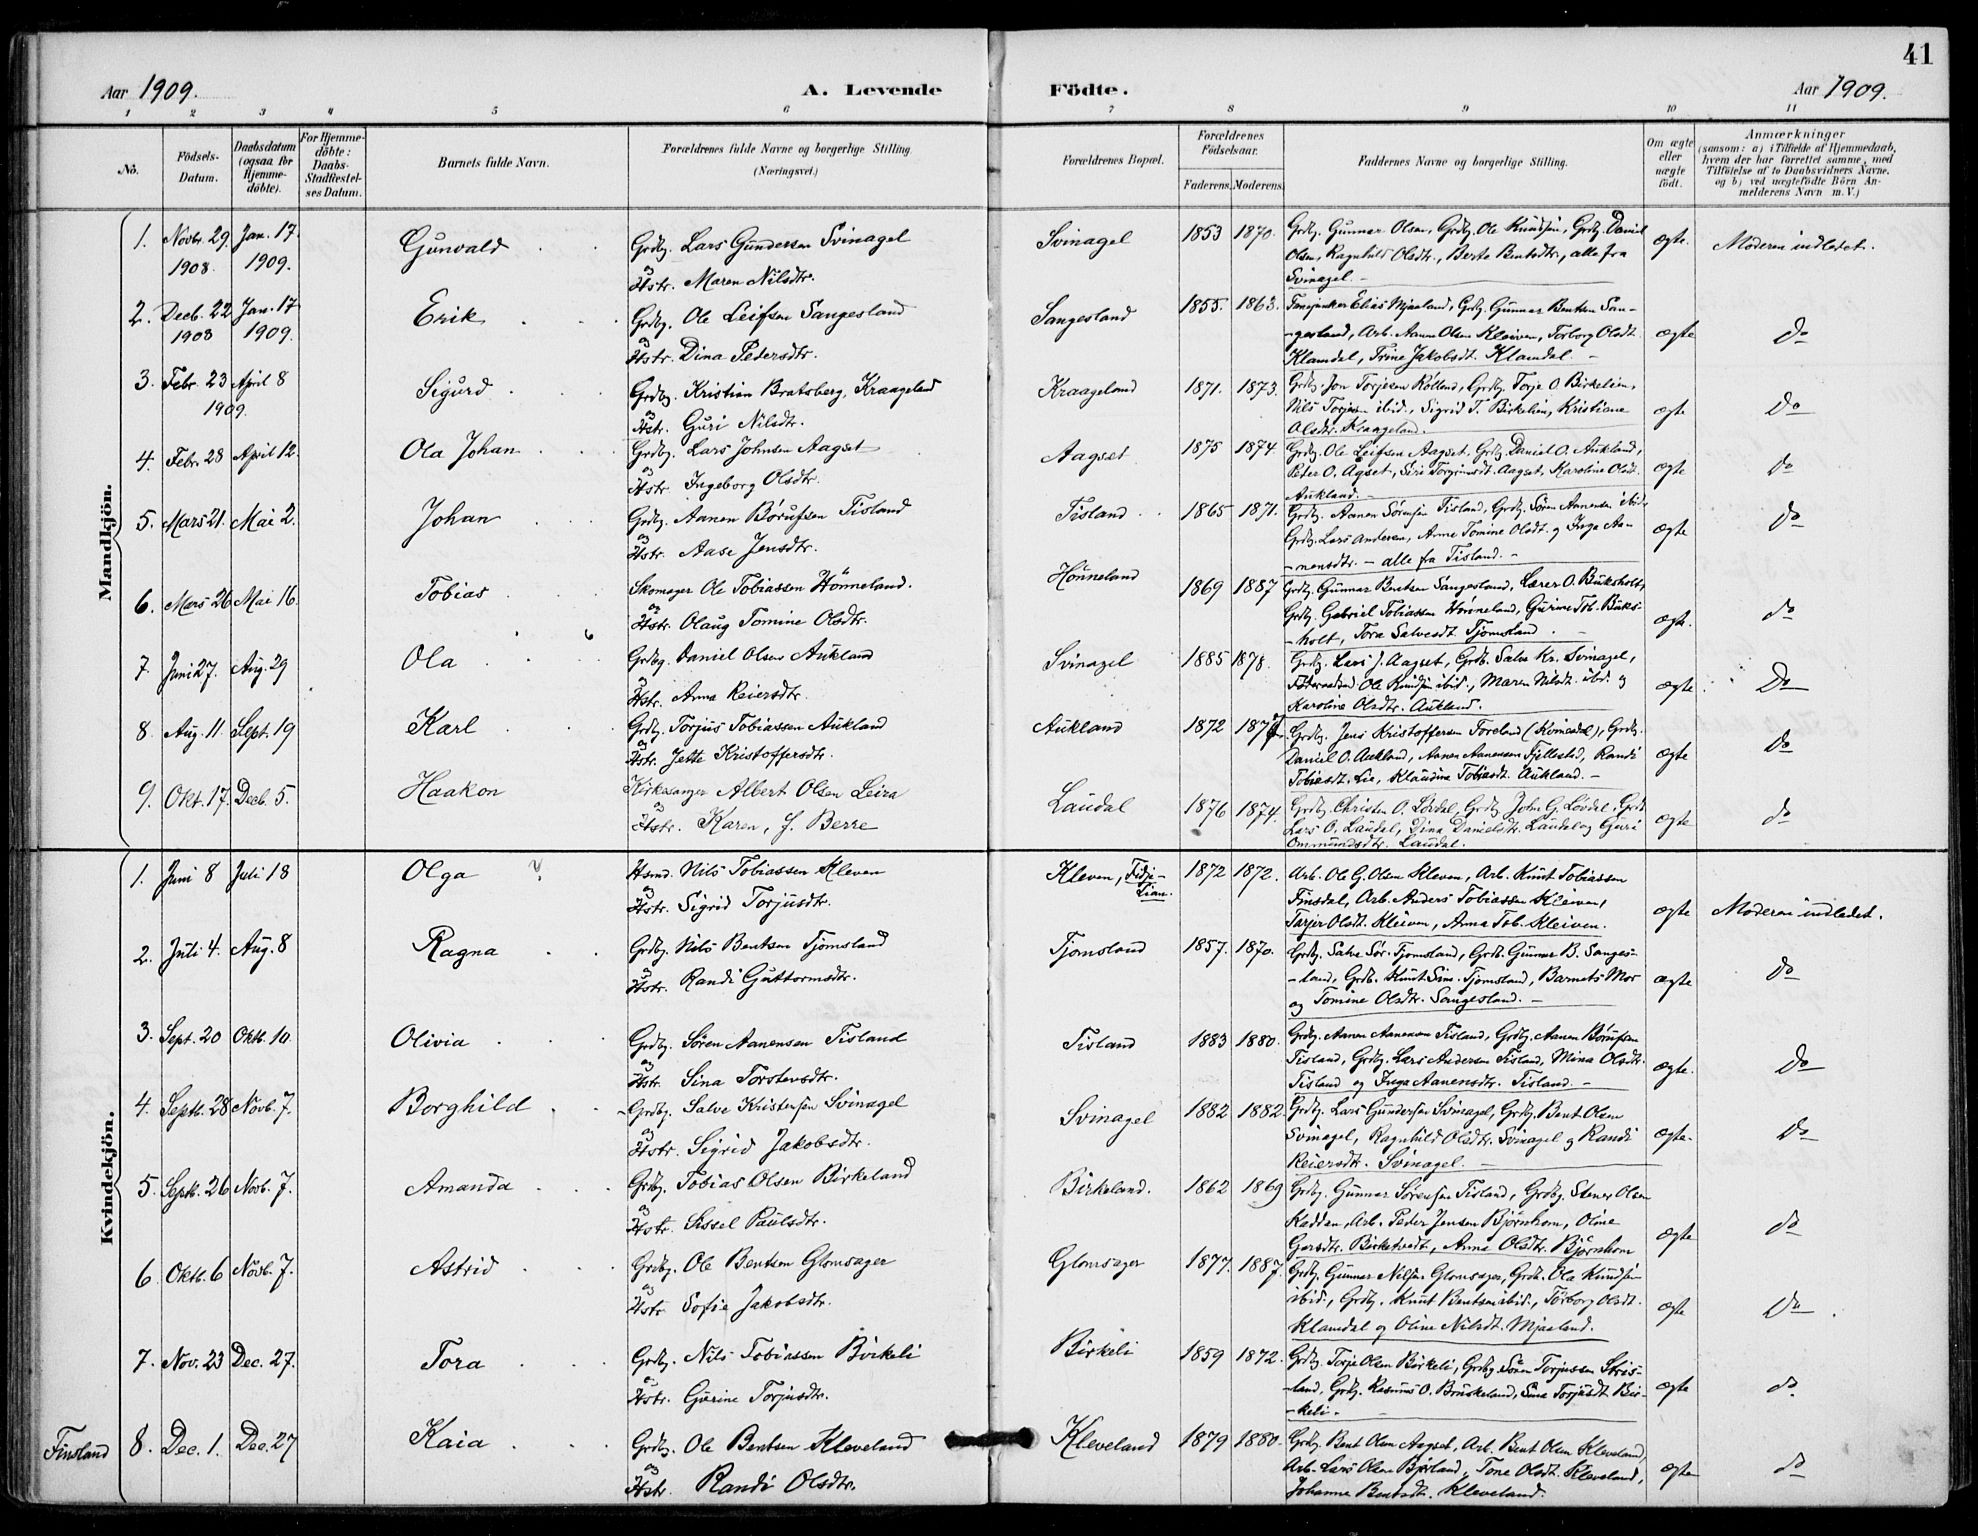 41
Aar 1909.
A. Levende Födte.
Aar 1909.
1 2 3 4 5 6 7 8 9 10 11
No.
Födsels-Datum.
Daabsdatum (ogsaa for Hjemme-döbte).
For Hjemme-döbte: Daabs-Stadfæstel-ses Datum.
Barnets fulde Navn.
Forældrenes fulde Navne og borgerlige Stilling (Næringsvei.)
Forældrenes Bopæl.
Forældrenes Födselsaar.
Faderens. Moderens.
Faddernes Navne og borgerlige Stilling.
Om ægte eller uægte födt.
Anmærkninger
(saasom: a) i Tilfælde af Hjemmedaab, hvem der har forrettet samme, med Tilföielse af to Daabsvidners Navne, og b) ved uægtefödte Börn An-melderens Navn m. V.)
Mandkjön.
1. Novbr. 29. 1908. Jan. 17. 1909. Gunvald Grdbg. Lars Gundersen Svinagel
og Hstr. Maren Nilsdtr. Svinagel 1853 1870. Grdbg. Gunnar Olsen, Grdbg. Ole Knudsen, Grdbg. Daniel
Olsen, Ragnhild Olsdtr., Berte Bentsdtr., alle fra
Svinagel. - ægte. Moderen indledet.
2. Decb. 22 1908 Jan. 17 1909. Erik Grdbg. Ole Leifsen Sangesland
og Hstr. Dina Pedersdtr. Sangesland 1855. 1863. Elias Mjaaland, Grdbg. Gunnar Bentsen San-
-gesland, Arb. Aanen Olsen Kleiven, Torborg Olsdt.
Klamdal, Trine Jakobsdt. Klamdal. - ægte do
3. Febr. 23 1909. April 8 Sigurd Grdbg. Kristian Bratsberg, Kraageland
og Hstr. Guri Nilsdtr. Kraageland 1871. 1873. Grdbg. Jon Torjesen Rølland, Grdbg. Torje O. Birkelien,
Nils Torjesen ibid., Sigrid T. Birkelien, Kristiane
Olsdtr. Kraageland. ægte Do
4. Febr. 28 April 12. Ola Johan Grdbg. Lars Johnsen Aagset
og Hstr. Ingeborg Olsdtr. Aagset 1875 1874. Grdbg. Ole Leifsen Aagset, Grdbg. Daniel O. Aukland,
Peter O. Agset, Siri Torgrimsdt. Aagset, Karoline Olsdt.
Aukland. - ægte do
5. Mars 21. Mai 2. Johan Grdbg. Aanen Börufsen Tisland
og Hstr. Aase Jensdtr. Tisland 1865 1871. Grdbg. Aanen Sörensen Tisland, Grdbg. Sören Aanensen ibid.,
Grdbg. Lars Andersen, Anne Tomine Olsdt. og Inga Aa-
-nensdtr. - alle fra Tisland. - ægte do
6. Mars 26 Mai 16. Tobias Skomager Ole Tobiassen Hönneland.
og Hstr. Olaug Tomine Olsdtr. Hönneland 1869 1887 Grdbg. Gunnar Bentsen Sangesland, Lærer O. Buksholt,
Grdbg. Gabriel Tobiassen Hönneland, Gurine Tob. Buks-
-holt, Tora Salvesdt. Tjomsland - ægte. do
7. Juni 27. Aug. 29 Ola Grdbg. Daniel Olsen Aukland
og Hstr. Anna Reiersdtr. Svinagel 1885 1878. Grdbg. Lars J. Aagset, Grdb. Salve Kr. Svinagel,
Ole Knudsen ibid., Maren Nilsdt. ibd. og
Karoline Olsdtr. Aukland. ægte. Do
8. Aug. 11. Sept. 19 Karl Grdbg. Torjus Tobiassen Aukland
og Hstr. Jette Kristoffersdtr. Aukland 1872 Grdbg. Jens Kristoffersen Foreland, Grdbg.
Daniel O. Aukland, Aanen Aanensen Fjellestad, Randi
Tobiesdt. Lie, Klaudine Tobiesdt. Aukland. - ægte do
9. Okt. 17. Decb. 5. Haakon Kirkesanger Albert Olsen Leira
og Hstr. Karen, f. Berre Laudal 1876 1874. Grdbg. Christen O. Lövdal, Grdbg. John G. Lovdal, Grdb.
Lars O. Laudal, Dina Danielsdtr. Laudal og Guri
Ommundsdtr. Laudal. ægte do
Kvindekjön.
1. Juni 8 Juli 18 Olga Hsmd. Nils Tobiassen Kleven
og Hstr. Sigrid Torjusdtr. Kleven, Fidje-
lian. 1872 1872. Arb. Ole G. Olsen Kleven, Arb. Knut Tobiassen
Finsdal, Arb. Anders Tobiassen Kleiven,
Tarjer Olsdt. Kleiven, Anna Tob. Kleiven. ægte Moderen indledet.
2. Juli 4. Aug. 8 Ragna Grdbg. Nils Bentsen Tjomsland
og Hstr. Randi Guttormsdtr. Tjomsland 1857. 1870. Grdbg. Salve Sör. Tjomsland, Grdb. Gunnar B. Sanges-
-land, Grdb. Knut Sim. Tjomsland, Barnets Mor
og Tomine Olsdtr. Sangesland. - ægte do
3. Sept. 20 Oktb. 10. Olivia Grdbg. Sören Aanensen Tisland
og Hstr. Sina Torstensdtr. Tisland 1883 1880. Grdbg. Aanen Aanensen Tisland, Grdbg. Aanen Börufsen
Tisland, Grdbg. Lars Andersen Tisland, Mina Olsdtr.
Tisland og Inga Aanensdtr. Tisland. - ægte. Do
4. Septb. 28 Novb. 7. Borghild Grdbg. Salve Kristensen Svinagel
og Hstr. Sigrid Jakobsdtr. Svinagel 1882 1882. Grdbg. Lars Gundersen Svinagel, Grdbg. Bent Olsen
Svinagel, Ragnhild Olsdtr. Svinagel og Randi
Reiersdtr. Svinagel. - ægte. Do
5. Septb. 26 Novb. 7. Amanda Grdbg. Tobias Olsen Birkeland
og Hstr. Sissel Paulsdtr. Birkeland. 1862 1869 Grdbg. Gunnar Sörensen Tisland, Grdbg. Stener Olsen
Hadden, Arb. Peder Jensen Björnhom, Oline
Birketvedt, Anna Olsdtr. Björnhom ægte do
6 Oktb. 6 Novb. 7. Astrid Grdbg. Ole Bentsen Glomsager
og Hstr. Sofie Jakobsdtr. Glomsager 1877. 1887. Grdbg. Gunnar Nilsen Glomsager, Grdb. Ola Knudsen
ibid., Grdbg. Knut Bentsen ibid., Torborg Olsdt.
Klamdal og Oline Nilsdt. Mjaaland. ægte Do
7. Nov. 23 Dec. 27. Tora Grdbg. Nils Tobiassen Birkeli
og Hstr. Gurine Torjusdtr. Birkeli 1859 1872. Grdbg. Torje Olsen Birkeli, Grdbg. Sören Torjussen Stris-
-land, Grdbg. Rasmus O. Bruskeland, Sina Torjusdt. Bir-
-keli. - ægte do
Finsland 8. Dec. 1. Dec. 27 Kaia Grdbg. Ole Bentsen Kleveland
og Hstr. Randi Olsdtr. Kleveland 1879 1880. Grdbg. Bent Olsen Aagset, Arb. Bent Olsen Kleveland,
Arb. Lars Olsen Bjerland, Tone Olsdt. Kleveland,
Johanne Bentsdt. Kleveland. ægte do